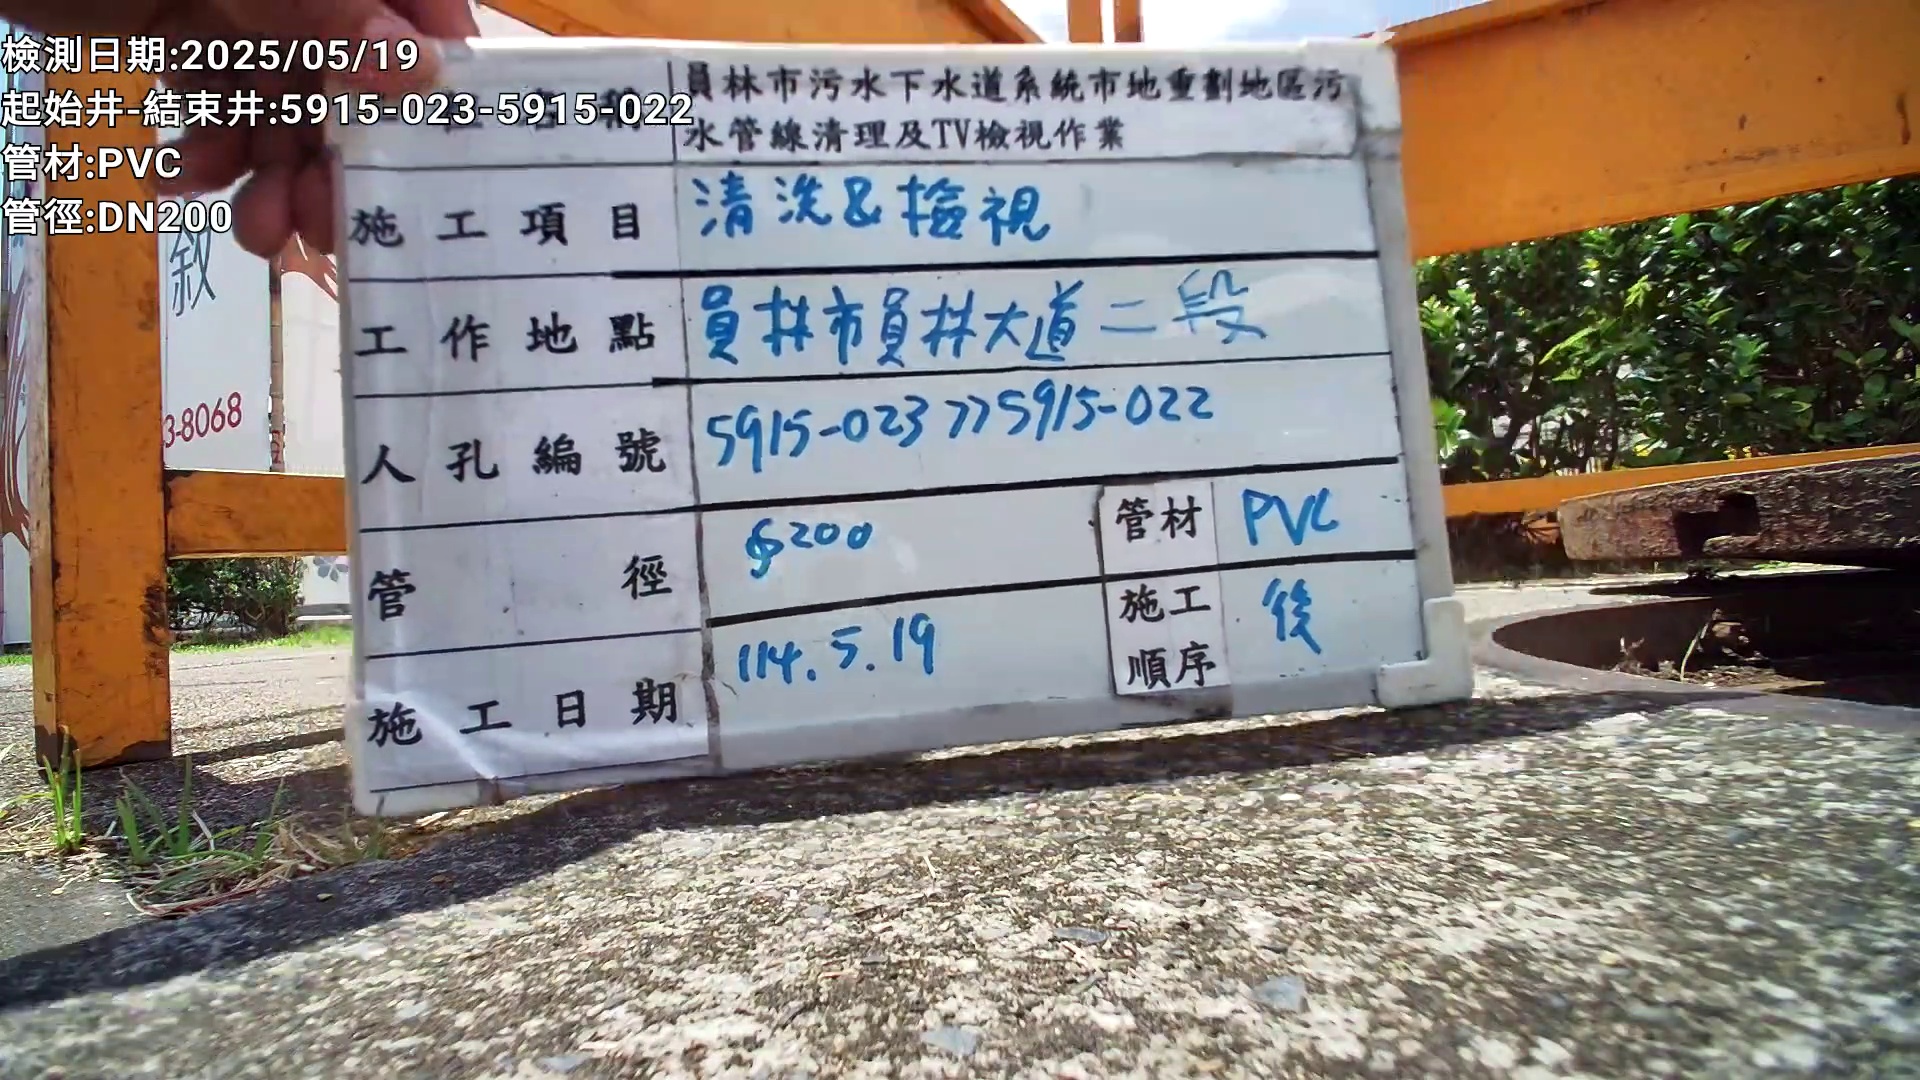 檢測日期:2025/05/19
起始井-結束井:5915-023-5915-022
管材:PVC
管徑:DN200
員林市污水下水道系統市地重劃地區污
水管線清理及TV檢視作業
施工項目 清洗&檢視
工作地點 員林市員林大道二段
人孔編號 5915-023>>5915-022
管徑 ϕ200 管材 PVC
施工日期 114.5.19 施工順序 後
敘
3-8068